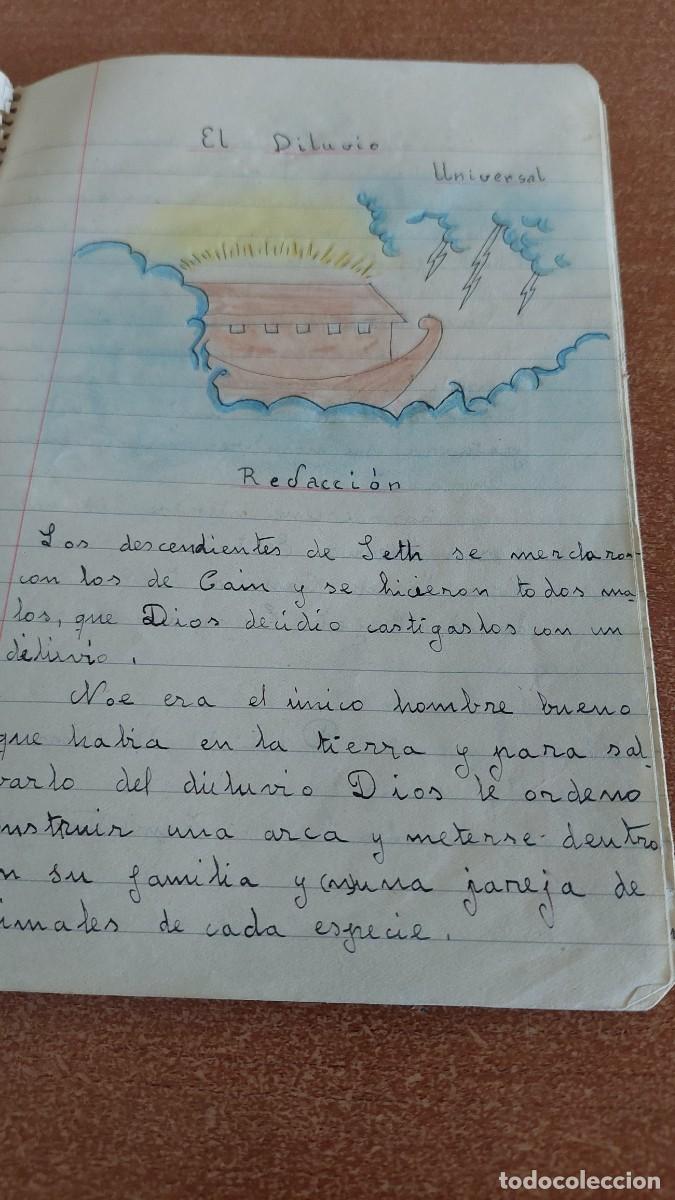 El Diluvio
Universal
Redacción
Los descendientes de Seth se merclaron
con los de Cain y se hicieron todos ma
los, que Dios decidio castigarlos con un
diluvio.
Noe era el único hombre bueno
que habia en la tierra y para sal-
varlo del diluvio Dios le ordeno
nstruir una arca y meterse dentro
n su familia y (n)una pareja de
imales de cada especie.
todocoleccion